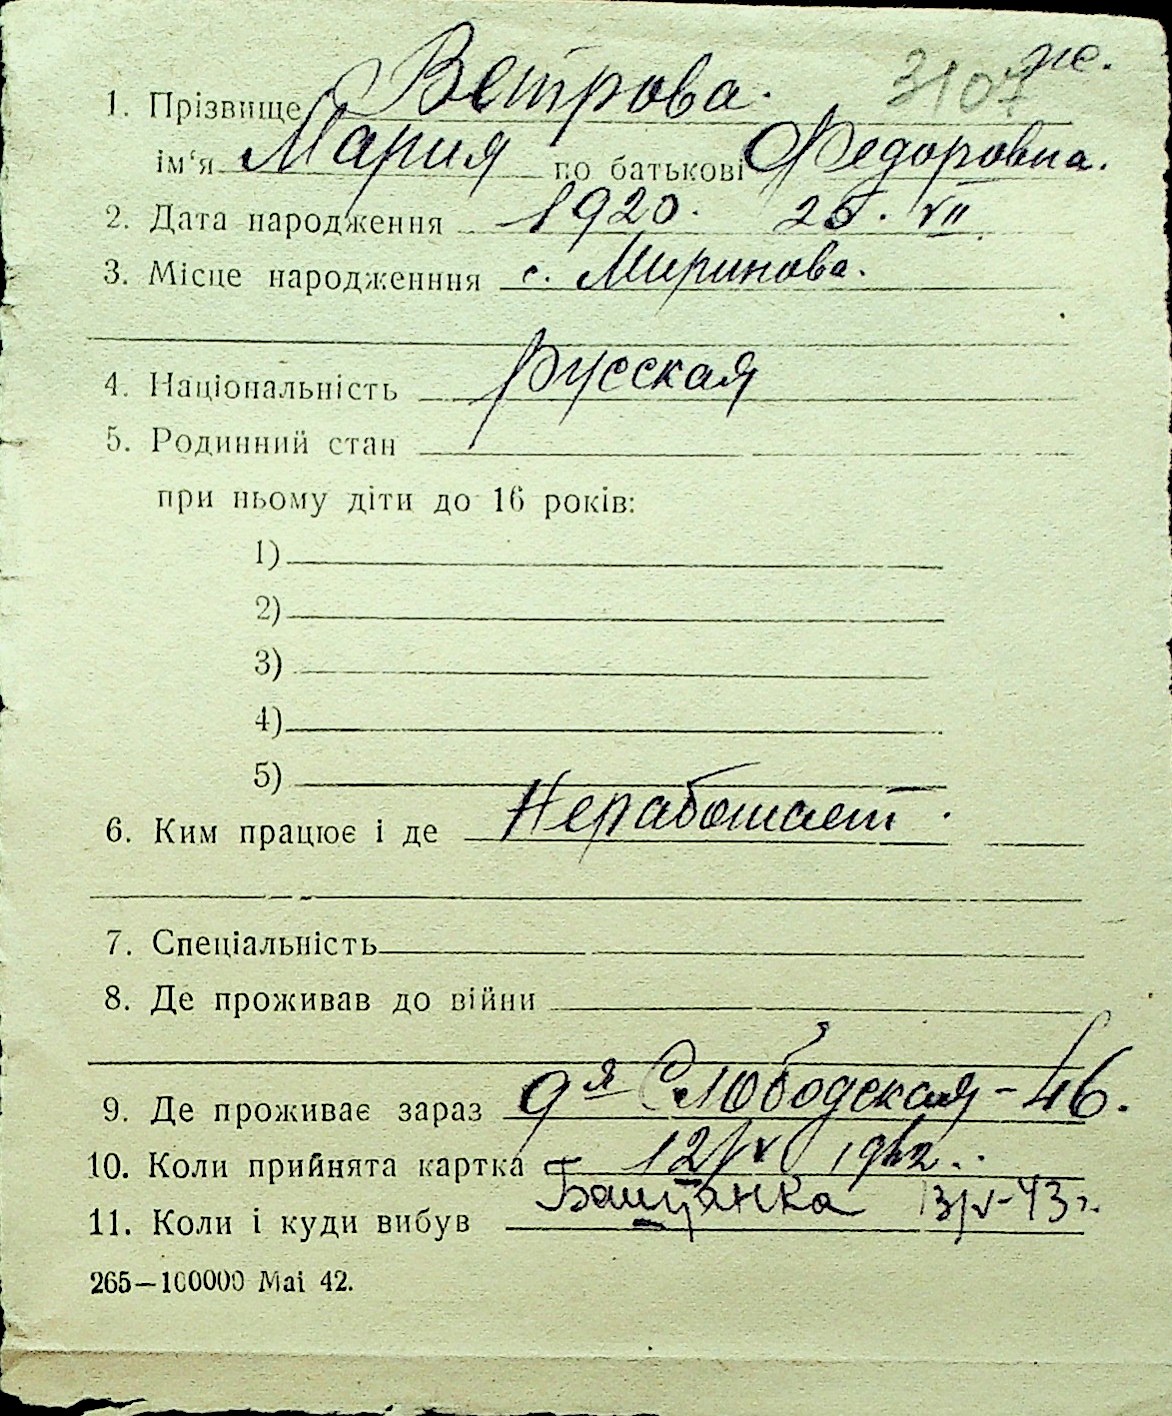 3107 же.
1. Прізвище Ветрова.
ім‘я Мария по батькові Федоровна.
2. Дата народження 1920. 25. VII.
3. Місце народженння с. Миринова.
4. Національність Русская
5. Родинний стан
при ньому діти до 16 років:
1)
2)
3)
4)
5)
6. Ким працює і де Неработает.
7. Спеціальність
8. Де проживав до війни
9. Де проживає зараз 9я Слободская - 46.
10. Коли прийнята картка 1942.
11. Коли і куди вибув Баштанка 13/V-43 г.
265—100000 Mai 42.